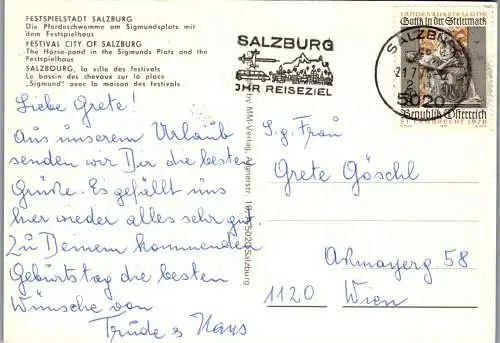 FESTSPIELSTADT SALZBURG
Die Pferdeschwemme am Sigmundsplatz mit
dem Festspielhaus
FESTIVAL CITY OF SALZBURG
The Horse-pond in the Sigmunds Platz and the
Festspielhaus
SALZBOURG, la ville des festivals
Le bassin des chevaux sur la place
„Sigmund" avec la maison des festivals
SALZBURG
IHR REISEZIEL
SALZBURG
21.7
5020
LANDESAUSSTELLUNG
Gotik in der Steiermark
Republik Österreich
ST. LAMBRECHT 1978
by MM-Verlag, 5020 Salzburg
Liebe Grete!
Aus unserem Urlaub
senden wir Dir die besten
Grüße. Es gefällt uns
hier wieder alles sehr gut.
Zu Deinem kommenden
Geburtstag die besten
Wünsche von
Trude & Hans
S.g. Frau
Grete Göschl
Aßmayerg. 58
1120 Wien